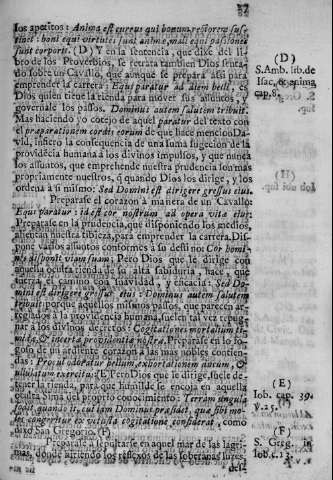 37
los apetitos: Anima est currus qui bonum rectorem sus-
tinet: boni equi virtutes sunt animæ, mali equi passiones
sunt corporis. (D) Y en la sentencia, que dixe del li-
bro de los Proverbios, se retrata tambien Dios senta-
do sobre un Cavallo, que aunque se prepara assi para
emprender la carrera: Equi paratur ad diem belli, es
Dios quien tiene la rienda para mover sus assuntos, y
governarle los passos. Dominus autem salutem tribuit.
Mas haciendo yo cotejo de aquel paratur del texto con
el præparationem cordis eorum de que hace mencion Da-
vid, infiero la consequencia de una suma sugecion de la
providencia humana à los divinos impulsos, y que nunca
los assuntos, que emprehende nuestra prudencia son mas
propriamente nuestros, que quando Dios los dirige, y los
ordena à si mismo: Sed Domini est dirigere gressus eius.
Preparase el corazon à manera de un Cavallo:
Equi paratur: id est cor nostrum ad opera vitæ
Preparase en la prudencia, que disponiendo los medios,
alientan nuestra tibieza, para emprender la carrera. Dis-
pone varios assuntos conformes à su destino: Cor homi-
nis disponit viam suam: Pero Dios que le dirige con
aquella oculta rienda de su alta sabiduria, hace, que
tuerza el camino con suavidad, y eficacia: Sed Do-
mini est dirigere gressus eius: Dominus autem salutem
tribuit por que aquellos mismos passos, que parecen ar-
reglados à la providencia humana, suelen tal vez repug-
nar à los divinos decretos: Cogitationes mortalium ti-
midæ, & incertæ providentiæ nostræ. Preparase en lo fo-
goso de un ardiente corazon à las mas nobles contien-
das: Procul odoratur bellum, exhortationem ducum, &
ululatum exercitus. (E) Pero Dios que le dirige, suele de-
tener la rienda, para que humilde se encoja en aquella
oculta sima del proprio conocimiento: Terram ungula
fodit, quando is, cui iam Dominus præsidet, qua sibi mo-
do congeritur ex vetusta cogitatione considerat, como
dixo San Gregorio. (F)
Preparase à sepultarse en aquel mar de las lagri-
mas, donde ardiendo los reflexos de las soberanas luzes,
(D)
S. Amb. lib. de
Isac, & anima
cap. 8.
(E)
Iob. cap. 39.
v. 25.
(F)
S. Greg. in
Iob. c. 13.